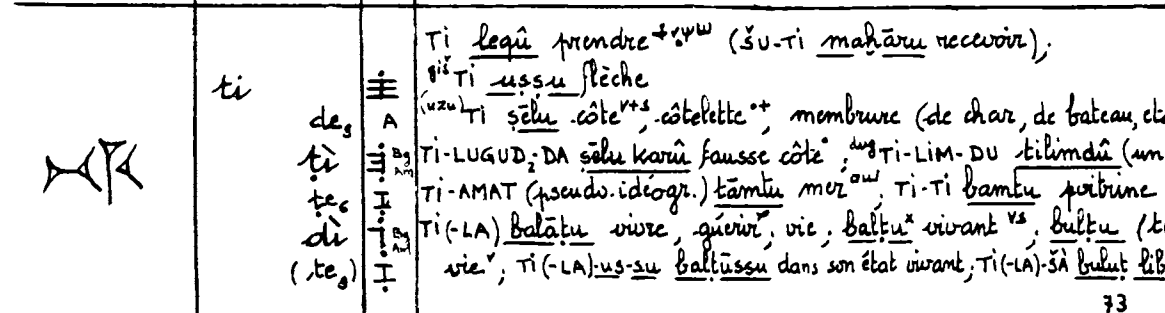 TI leqû prendre (ŠU-TI maḫāru recevoir),
ti giš TI uṣṣu flèche
de₅ A (uzu) TI ṣēlu côte, côtelette, membrure (de char, de bateau, etc
ṭì TI-LUGUD₂-DA ṣēlu karû fausse côte, dug TI-LIM-DU tilimdû (un
ṭe₆ TI-AMAT (pseudo-idéogr.) tāmtu mer, TI-TI bamtu poitrine
dì TI(-LA) balāṭu vivre, guérir, vie, balṭu vivant, bulṭu
vie, TI(-LA)-us-su balṭūssu dans son état vivant, TI(-LA)-ŠÀ buluṭ lib
73